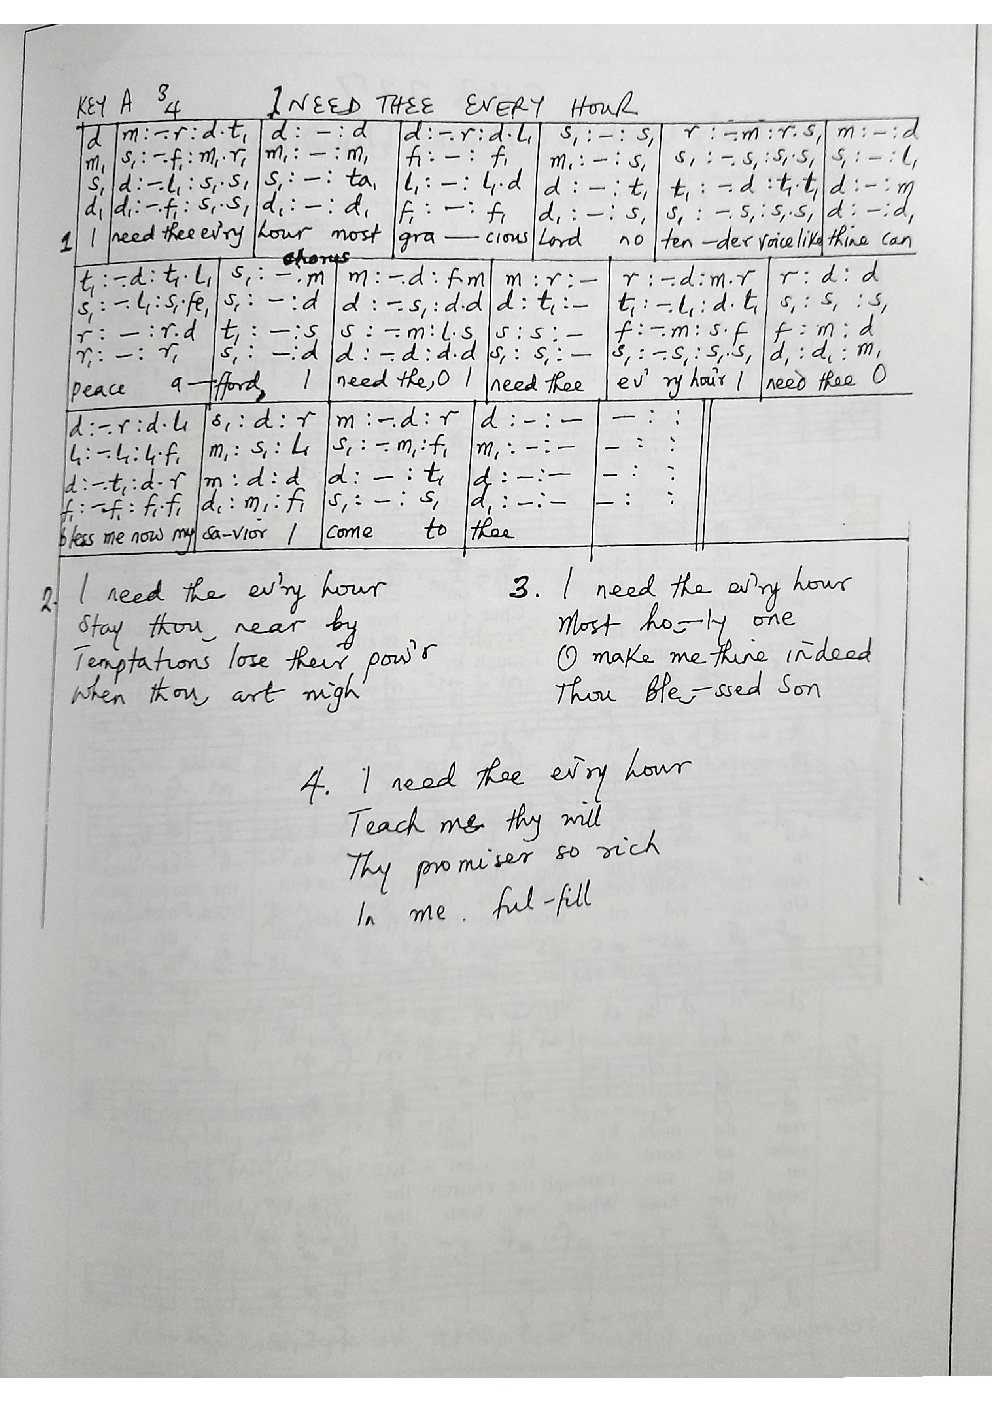 KEY A 3/4 I NEED THEE EVERY HOUR
d | m:-.r:d.t₁ | d:-:d | d:-.r:d.l₁ | s₁:-:s₁ | r:-.m:r.s₁ | m:-:d
m₁ | s₁:-.f₁:m₁.r₁ | m₁:-:m₁ | f₁:-:f₁ | m₁:-:s₁ | s₁:-.s₁:s₁.s₁ | s₁:-:l₁
s₁ | d:-.l₁:s₁.s₁ | s₁:-:ta₁ | l₁:-:l₁.d | d:-:t₁ | t₁:-.d:t₁.t₁ | d:-:m
d₁ | d₁:-.f₁:s₁.s₁ | d₁:-:d₁ | f₁:-:f₁ | d₁:-:s₁ | s₁:-.s₁:s₁.s₁ | d:-:d₁
1 I | need thee ev'ry | hour most | gra — cious | Lord no | ten -der voice like | thine can
chorus
t₁:-.d:t₁.l₁ | s₁:-.m | m:-.d:f.m | m:r:- | r:-.d:m.r | r:d:d
s₁:-.l₁:s₁.fe₁ | s₁:-:d | d:-.s₁:d.d | d:t₁:- | t₁:-.l₁:d.t₁ | s₁:s₁:s₁
r:-:r.d | t₁:-:s | s:-.m:l.s | s:s:- | f:-.m:s.f | f:m:d
r₁:-:r₁ | s₁:-:d | d:-.d:d.d | s₁:s₁:- | s₁:-.s₁:s₁.s₁ | d₁:d₁:m₁
peace a- | fford, I | need the, O I | need thee | ev' ry hour I | need thee O
d:-.r:d.l₁ | s₁:d:r | m:-.d:r | d:-:- | -: :
l₁:-.l₁:l₁.f₁ | m₁:s₁:l₁ | s₁:-.m₁:f₁ | m₁:-:- | -: :
d:-.t₁:d.r | m:d:d | d:-:t₁ | d:-:- | -: :
f₁:-.f₁:f₁.f₁ | d₁:m₁:f₁ | s₁:-:s₁ | d₁:-:- | -: :
bless me now my | sa-vior I | come to | thee
2. I need the ev'ry hour
Stay thou near by
Temptations lose their pow'r
When thou art nigh
3. I need the ev'ry hour
Most ho-ly one
O make me thine indeed
Thou Ble-ssed Son
4. I need thee ev'ry hour
Teach me thy will
Thy promiser so rich
In me. ful-fill